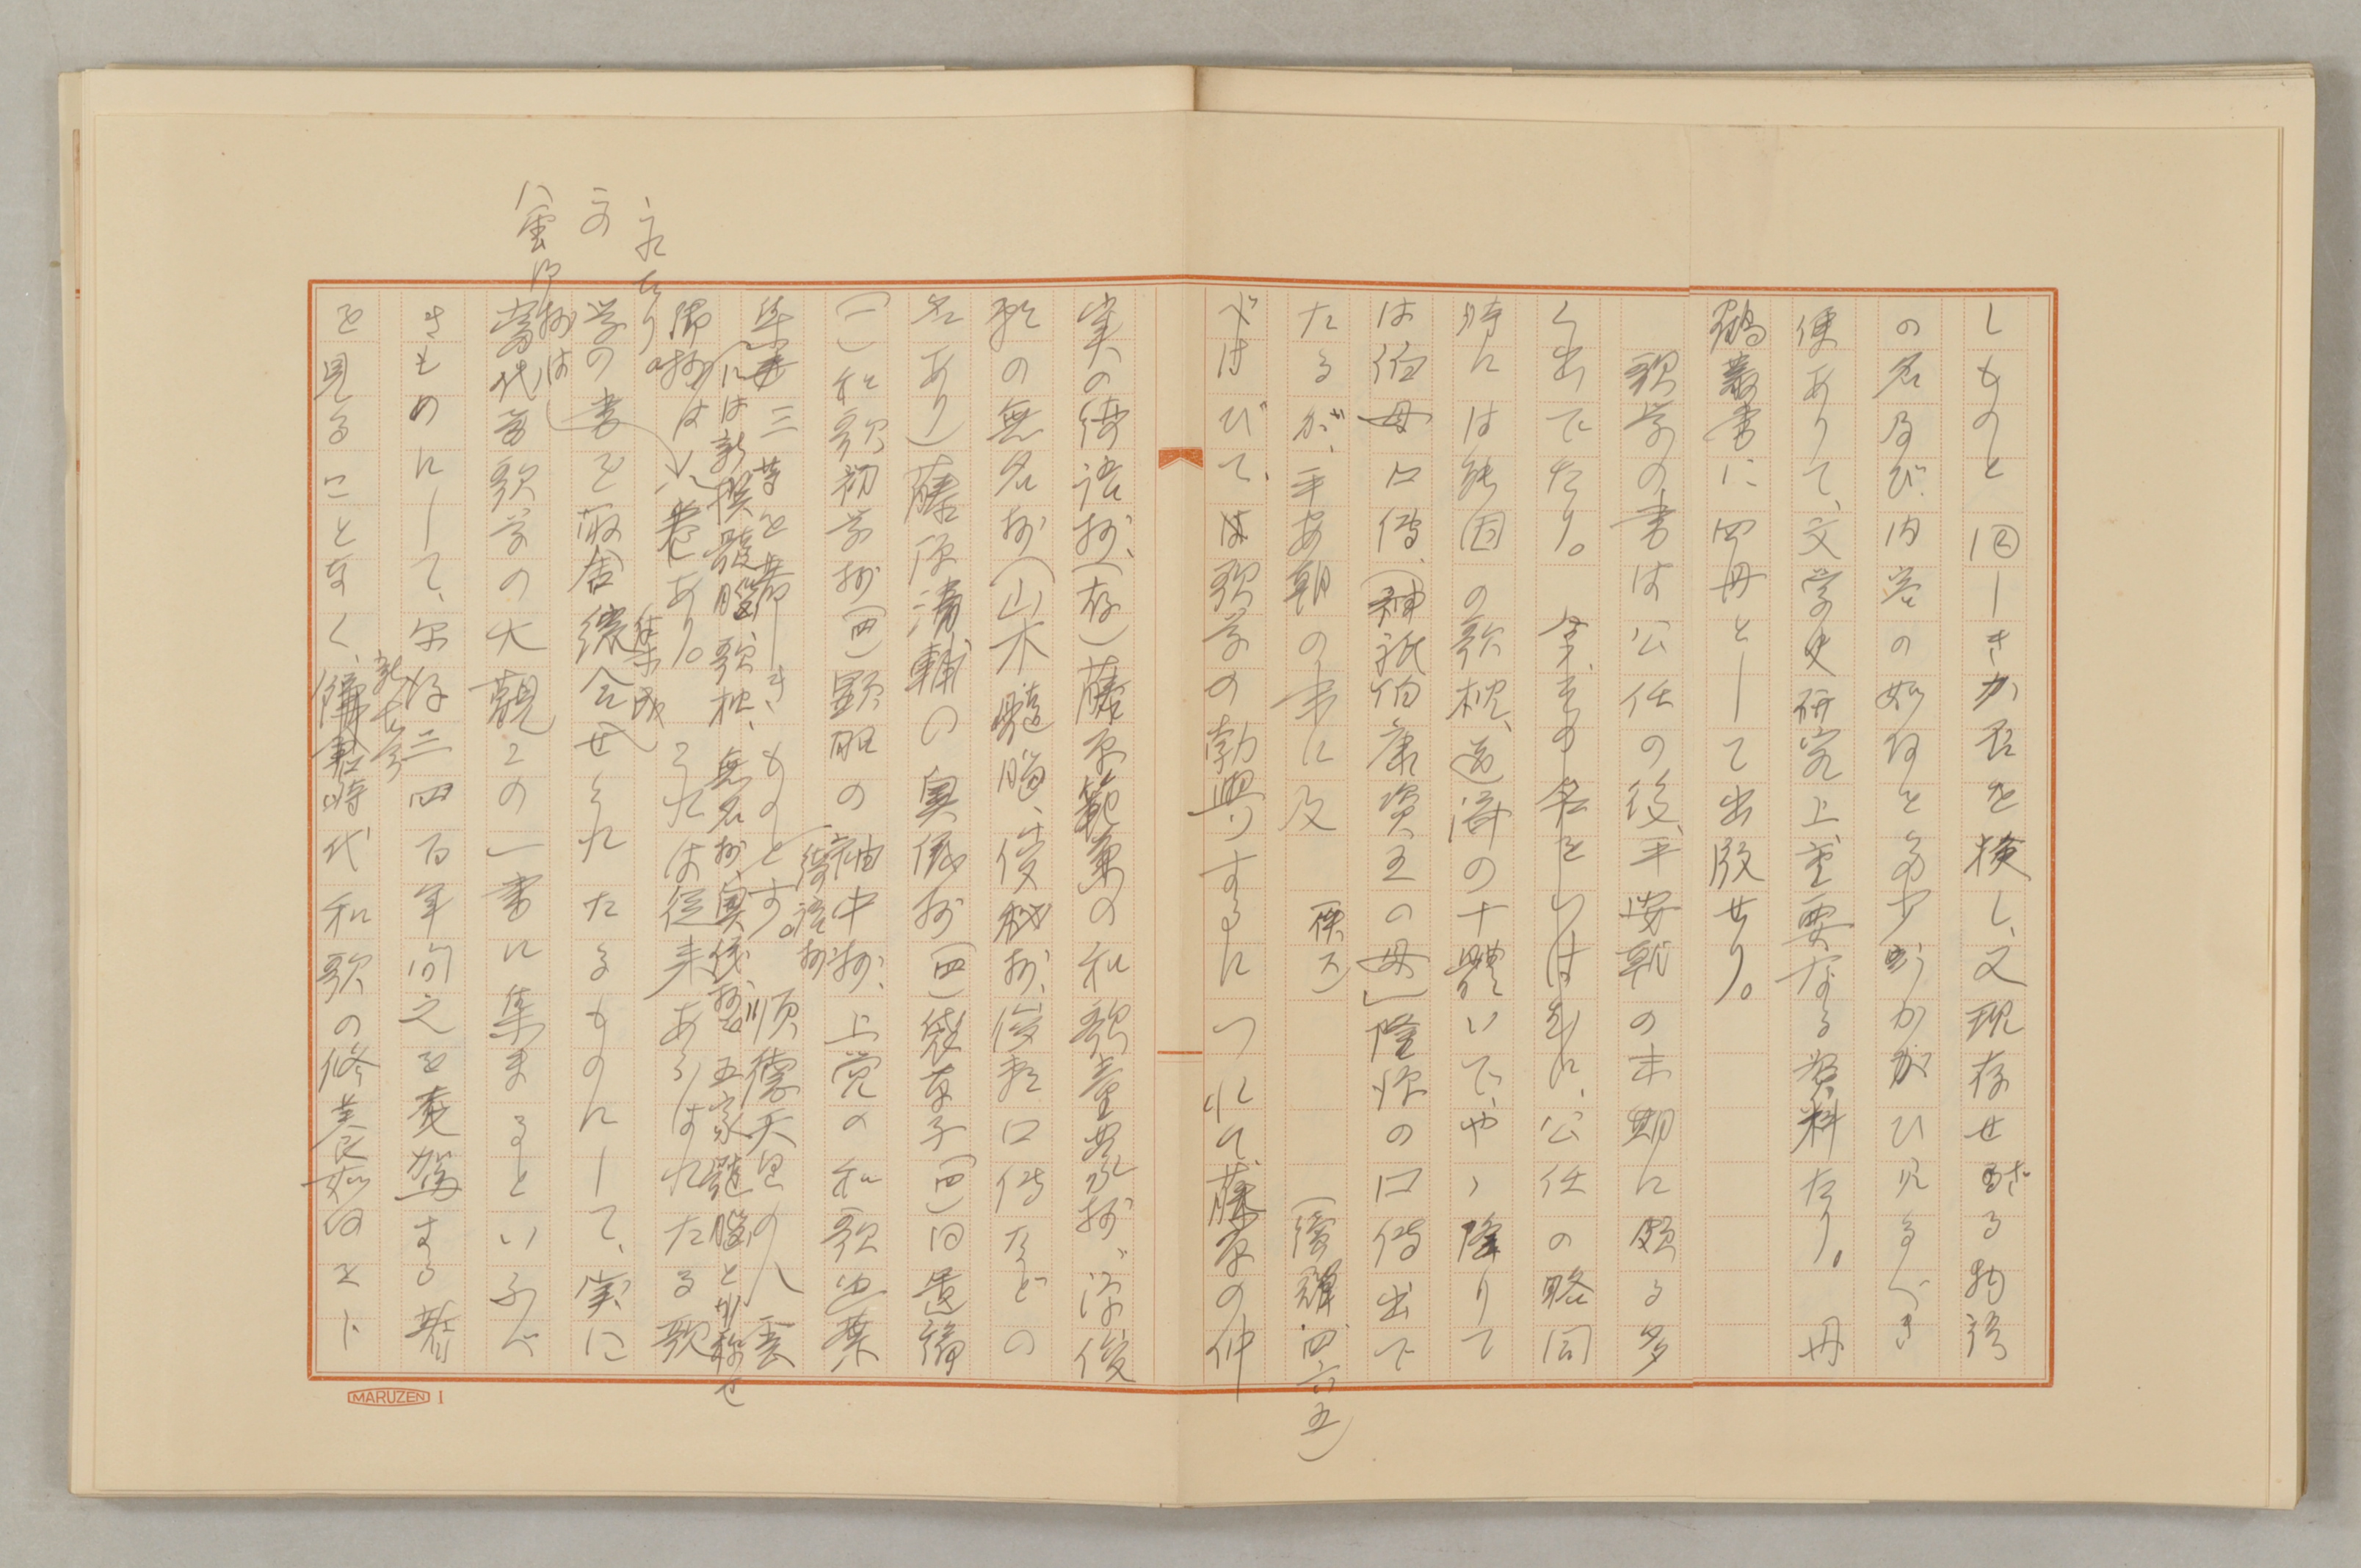 しものと同しきか否を検し、又現存せざる物語
の名及び内容の如何を多少うかがひ見るべき
便ありて、文学史研究上重要なる資料たり。丹
鶴叢書に四冊として出版せり。
歌学の書は公任の後、平安朝の末期に頗る多
く出でたり。今、その名をいはむに、公任の略同
時には能因の歌枕、道済の十體いで、やゝ降りて
は伯母口傳、(神祇伯康資王の母)隆源の口傳出で
たるが、平安朝の末に及
(佚文)
(後輝四六五)
べはびて、は歌学の勃興りするにつれて、藤原の仲
実の綺語抄、(存)藤原範兼の和歌童蒙抄、源俊
頼の無名抄(山木髄脳、俊秘抄、俊頼口傳などの
名あり)藤原清輔の奥儀抄(四)袋草子(四)同遺編
(一)和歌初学抄(四)顕昭の袖中抄、上覚の和歌色葉
綺語抄
集三等を著しきものとす。順徳天皇の八雲
には新撰髄脳、歌枕、無名抄、奥儀抄、五家髄脳と称せ
られたり。
御抄は六巻あり。これは従来あらはれたる歌
集成
学の書を取舎綜合せられたるものにして、実に
この
八雲御抄は
当代学歌学の大観この一書に集まるといふべ
きものにして、尓後三四百年間之を凌駕する著
新古今
を見ることなく、時代和歌の修養如何を卜
MARUZEN 1